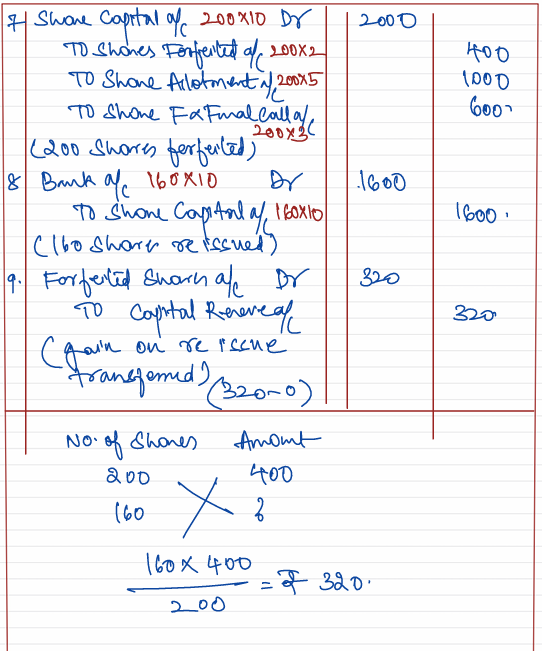 7 Share Capital a/c 200×10 Dr 2000
To Shares Forfeited a/c 200×2 400
To Share Allotment a/c 200×5 1000
To Share F&Final Call a/c 600
200×3
(200 Shares forfeited)
8 Bank a/c 160×10 Dr 1600
To Share Capital a/c 160×10 1600
(160 Shares reissued)
9. Forfeited Shares a/c Dr 320
To Capital Reserve a/c 320
(gain on re issue
transferred) (320-0)
No. of Shares Amount
200 400
160 ?
160 × 400
= ₹ 320.
200